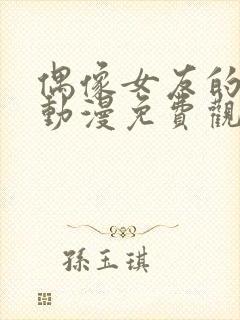 偶像女友的
動漫免費觀
孫玉琪